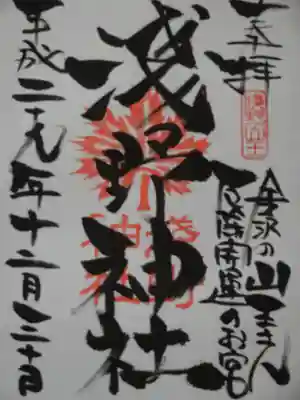 奉拝
金沢の山王さん
厄除開運のお宮
浅野神社
平成二十九年十二月三十日